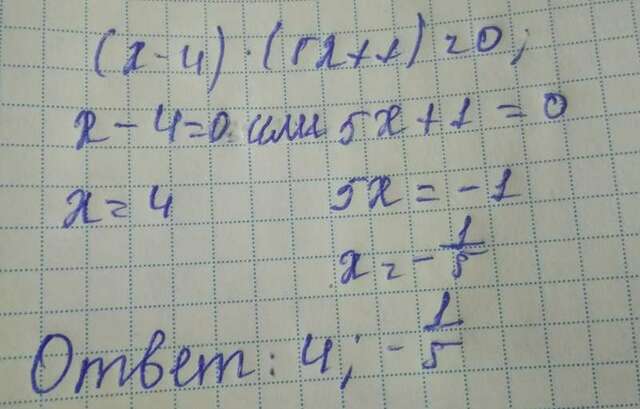 (x-4)·(5x+1)=0;
x-4=0 или 5x+1=0
x=4 5x=-1
x=-1/5
Ответ: 4; -1/5